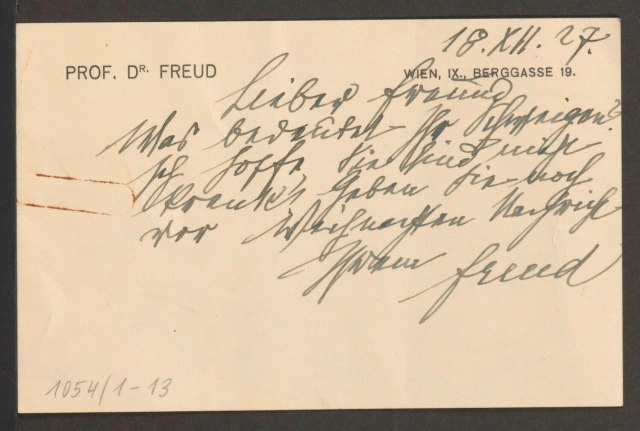 18.XII.27.
PROF. DR. FREUD
WIEN, IX., BERGGASSE 19.
Lieber Freund
Was bedeutet Ihr Schweigen?
Ich hoffe Sie sind nicht
krank. Geben Sie noch
vor Weihnachten Nachricht
Ihrem Freud
1054/1-13